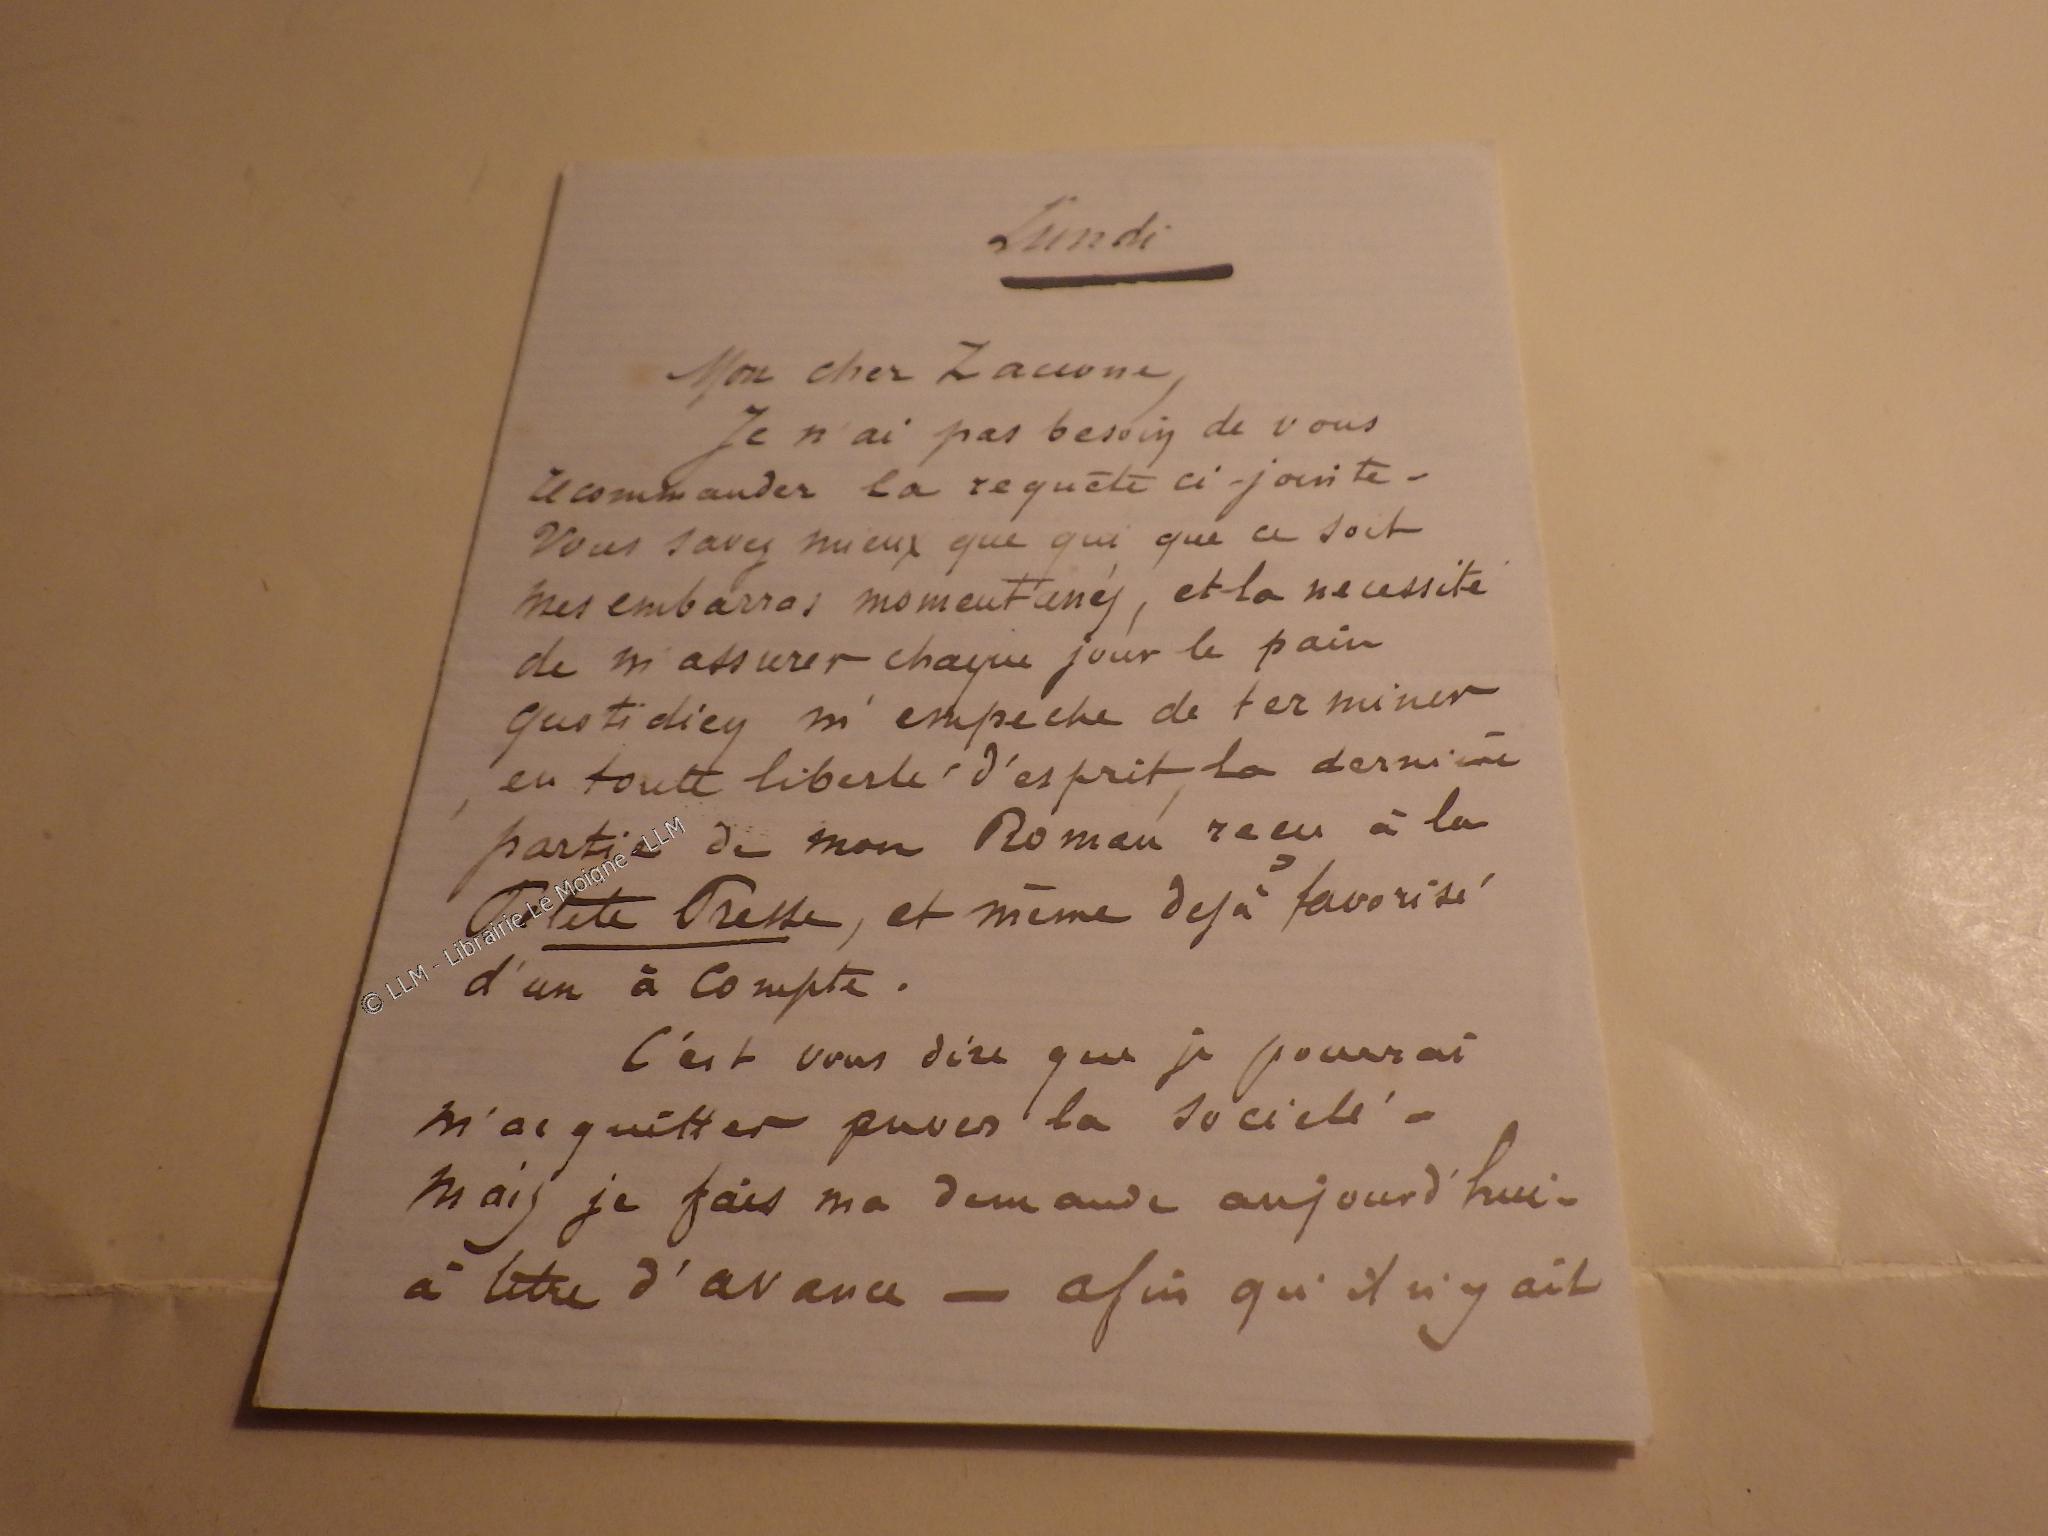 Lundi
Mon cher Zaccone,
Je n'ai pas besoin de vous
recommander la requête ci-jointe -
Vous savez mieux que qui que ce soit
mes embarras momentanés, et la necessité
de m'assurer chaque jour le pain
quotidien m'empeche de terminer
, en toute liberté d'esprit, la dernière
partie de mon Roman reçu à la
Petite Presse, et même dejà favorisé
d'un à compte.
C'est vous dire que je pourrai
m'acquitter envers la société -
Mais je fais ma demande aujourd'hui -
à titre d'avance — afin qu'il n'y ait
© LLM - Librairie Le Moigne - LLM